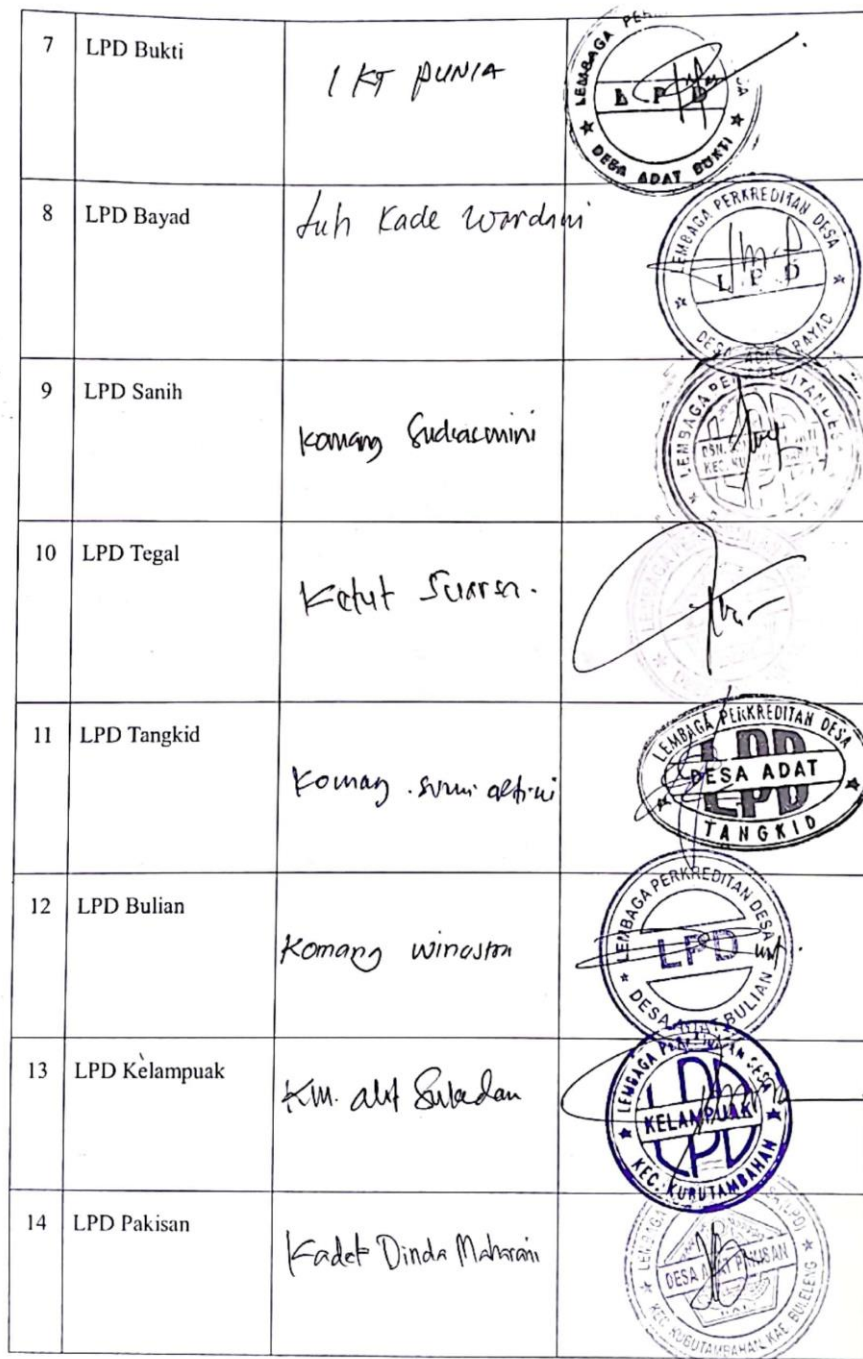 7 LPD Bukti I KT PUNIA
LEMBAGA
L P D
DESA ADAT BUKTI
8 LPD Bayad Luh Kade Wardani
LEMBAGA PERKREDITAN DESA
L P D
DESA ADAT BAYAD
9 LPD Sanih Komang Sudiasmini
LEMBAGA
10 LPD Tegal Ketut Suarsa.
11 LPD Tangkid Komang
LEMBAGA PERKREDITAN DESA
LPD
DESA ADAT
TANGKID
12 LPD Bulian Komang
LEMBAGA PERKREDITAN DESA
LPD
DESA ADAT BULIAN
13 LPD Kelampuak KM.
LEMBAGA PERKREDITAN DESA
LPD
KELAMPUAK
KEC. KUBUTAMBAHAN
14 LPD Pakisan Kadek Dinda Maharani
DESA ADAT PAKISAN
KEC. KUBUTAMBAHAN, KAB. BULELENG